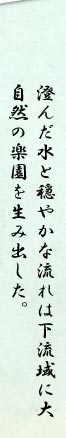 澄んだ水と穏やかな流れは下流域に大
自然の楽園を生み出した。